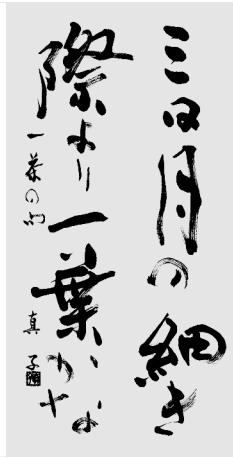 三日月の細き
際より一葉かな
一茶の句
真子